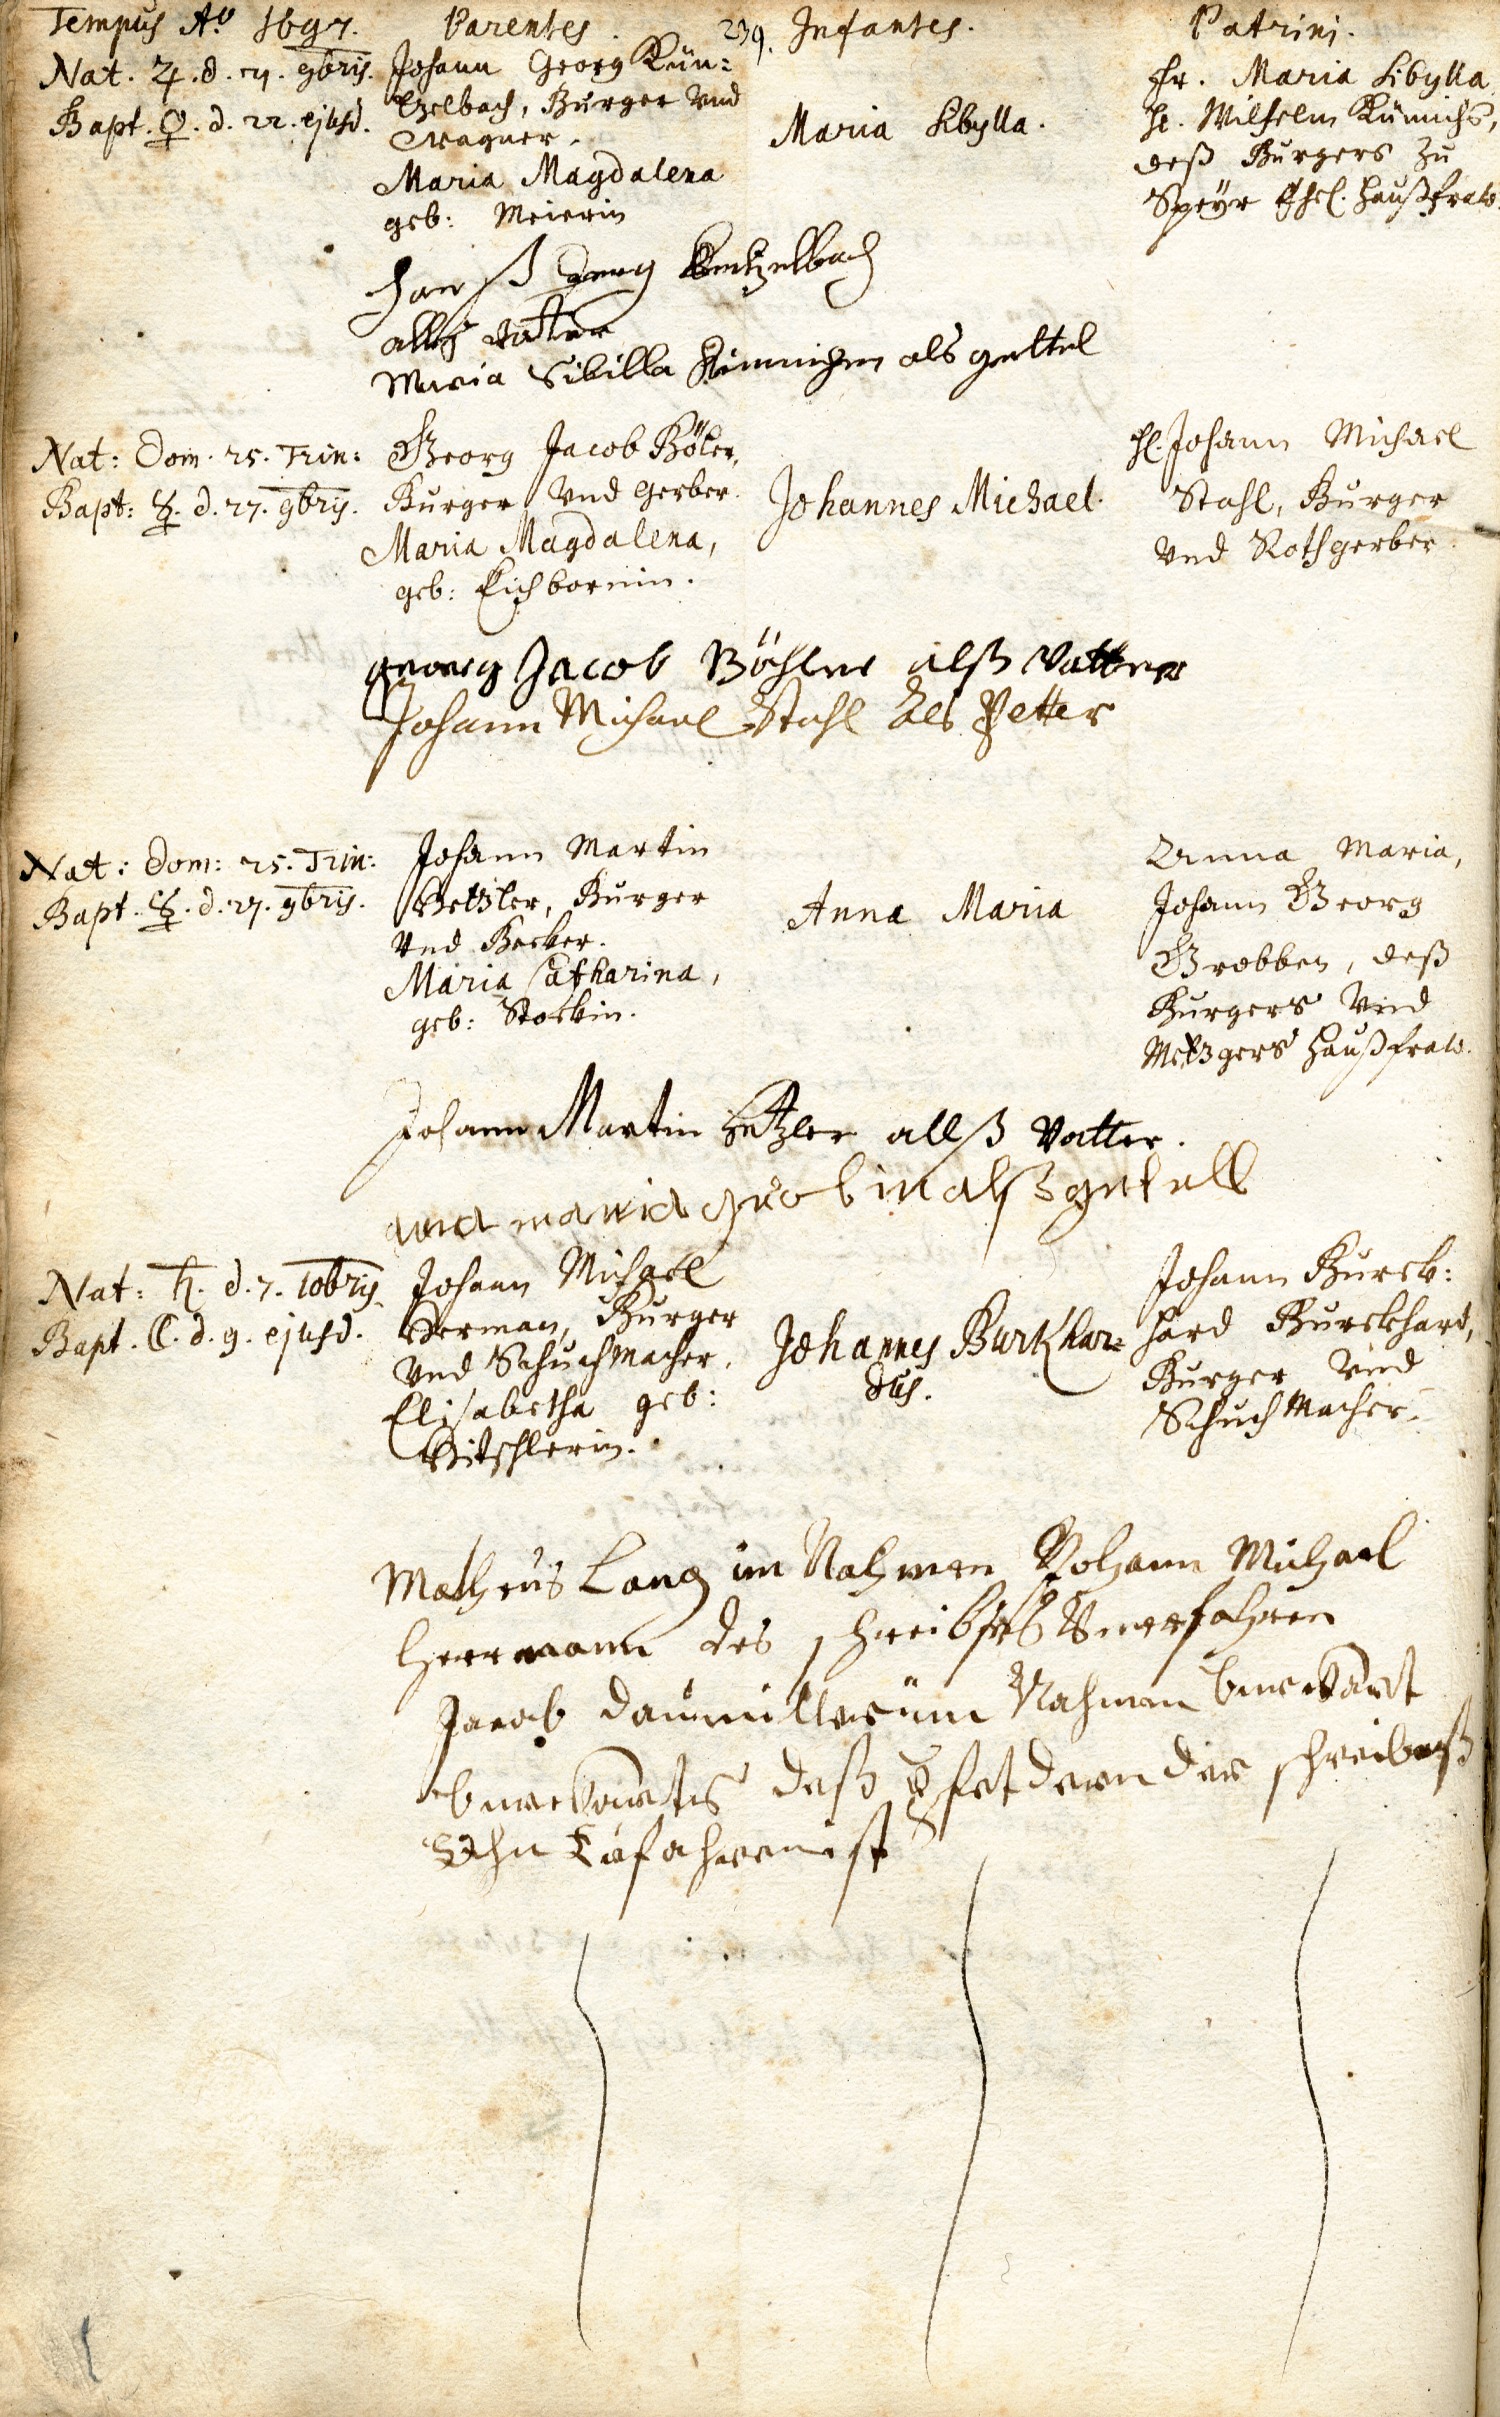 Tempus Aº 1697. Parentes. 239. Infantes. Patrini.
Nat. ♃. d. 21. 9bris.
Bapt. ♀. d. 22. ejusd.
Johann Georg Kün=
tzelbach, Burger vnd
Wagner.
Maria Magdalena
geb: Meierin
Maria Sibylla.
Fr. Maria Sibylla,
H. Wilhelm Künnichs,
deß Burgers zu
Speÿr Ehel. Haußfraw.
Hanß Jerg Kintzelbach
allß Vatter
Maria Sibilla als gettel
Nat: Dom. 25. Trin:
Bapt: ☿. d. 27. 9bris.
Georg Jacob Böler,
Burger vnd Gerber.
Maria Magdalena,
geb: Eichbornin.
Johannes Michael.
H. Johann Michael
Stahl, Burger
vnd Rothgerber.
georg Jacob Böhler alß Vatter
Johann Michael Stahl als Petter
Nat: Dom: 25. Trin:
Bapt. ☿. d. 27. 9bris.
Johann Martin
Hetzler, Burger
vnd Becker.
Maria Catharina,
geb: Stockin.
Anna Maria
Anna Maria,
Johann Georg
Grobben, deß
Burgers vnd
Metzgers Haußfraw.
Johann Martin Hetzler allß Vatter.
ana maria grobin alß gettell
Nat: ♄. d. 7. 10bris
Bapt. ☾. d. 9. ejusd.
Johann Michael
Herman, Burger
vnd Schuchmacher.
Elisabetha geb:
Hitschlerin.
Johannes Burkhar=
dus.
Johann Burck:
hard Burckhard,
Burger vnd
Schuchmacher.
Matheus Lang im Nahmen Johann Michael
Herrmann des schreibens Vnerfahren
Jacob Daumiller im Nahmen
deß der schreibenß
ist